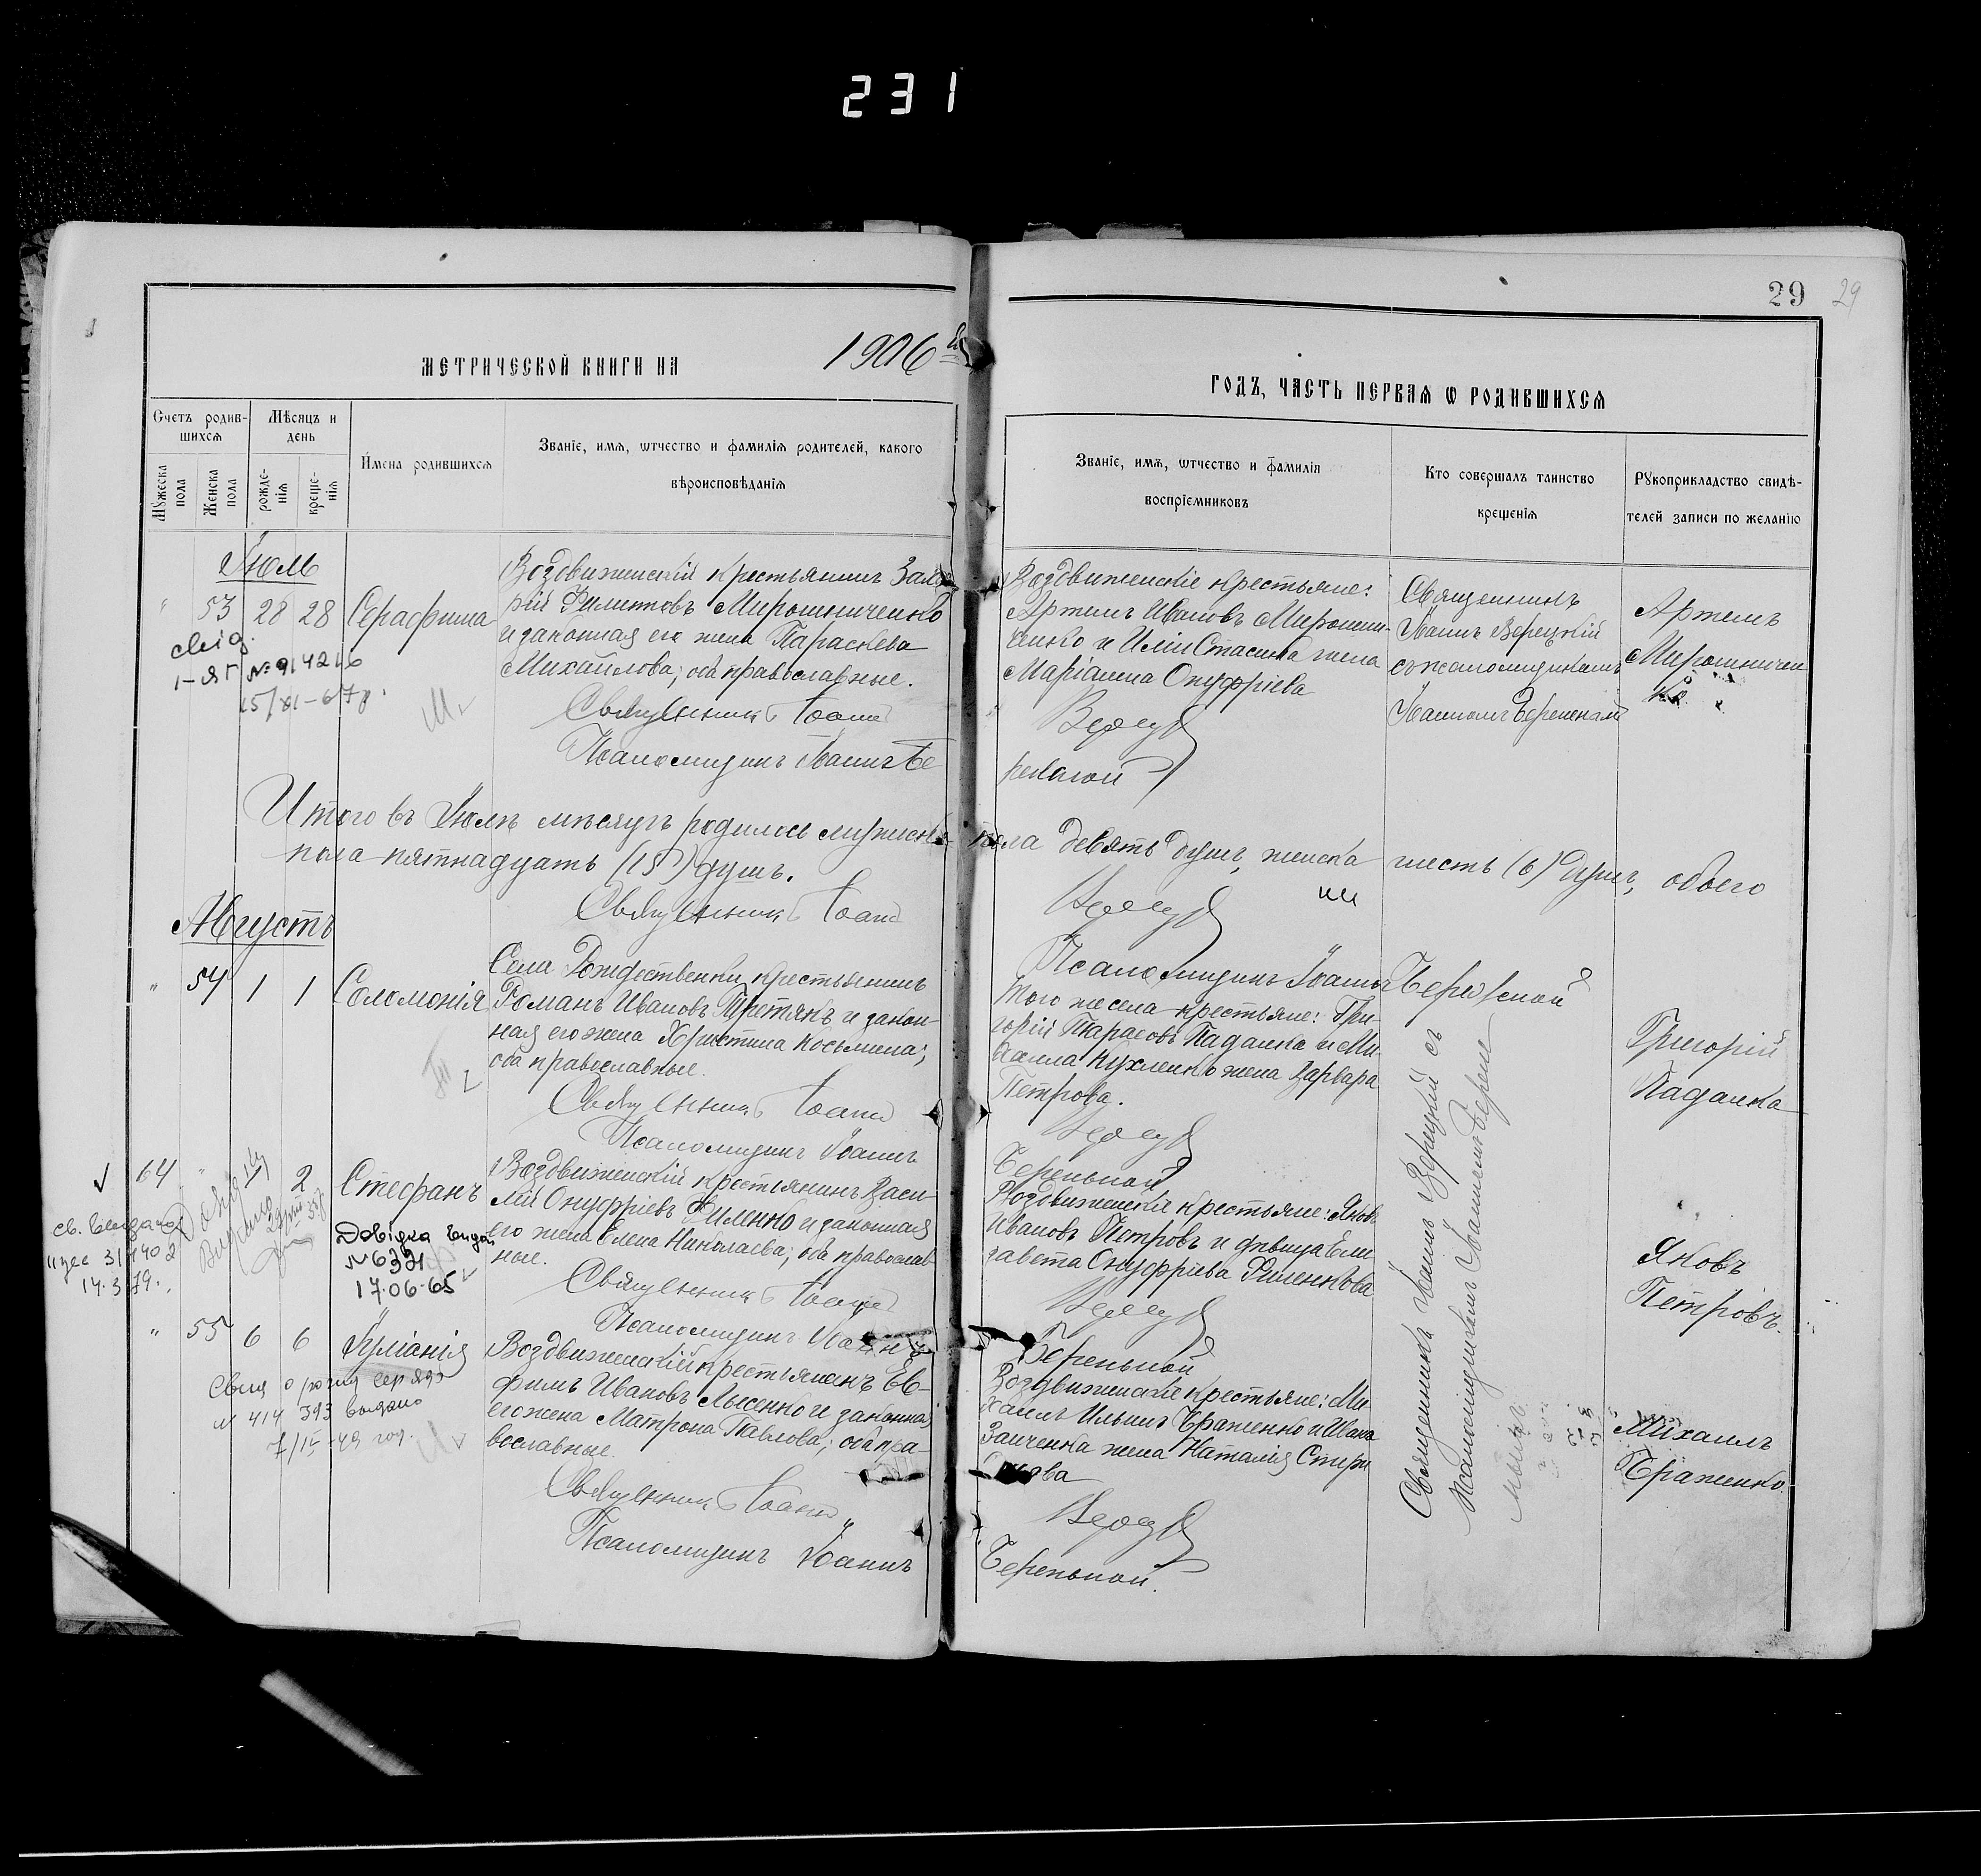 231
29
29
МЕТРИЧЕСКОЙ КНИГИ НА
1906
ГОДЪ, ЧАСТЬ ПЕРВАЯ Ѡ РОДИВШИХСЯ
Счетъ родив-
шихся
Мужеска пола
Женска пола
Мѣсяцъ и
день
рожде-
нія
креще-
нія
Имена родившихся
Званіе, имя, ѡтчество и фамилія родителей, какого
вѣроисповѣданія
Званіе, имя, ѡтчество и фамилія
воспріемниковъ
Кто совершалъ таинство
крещенія
Рукоприкладство свидѣ-
телей записи по желанію
Іюль
" 53 28 28 Серафима
Воздвиженскій крестьянинъ Заха-
рій Филиповъ Мирошниченко
и законная его жена Параскева
Михайлова; оба православные.
Священникъ Іоаннъ
Псаломщикъ Іоаннъ Бе
Воздвиженскіе крестьяне:
Артемъ Ивановъ Мирошни-
ченко и Иліи Стасика жена
Маріанна Онуфріева
Верец
Священникъ
Іоаннъ Верецкій
съ псаломщикомъ
Іоанномъ
Артемъ
Мирошничен
ко.
№ 914216
Итого въ Іюлѣ мѣсяцѣ родилось мужеска пола девять душъ, женска шесть (6) душъ, обоего
пола пятнадцать (15) душъ.
Священникъ Іоаннъ
Псаломщикъ Іоаннъ
Августъ
" 54 1 1 Соломонія
Села Рождественки крестьянинъ
Романъ Ивановъ Третякъ и закон-
ная его жена Христина Косьмина;
оба православные.
Священникъ Іоаннъ
Псаломщикъ Іоаннъ
Того же села крестьяне: Гри-
горій Тарасовъ Падалка и Ми-
хаила Кухленко жена Варвара
Петрова.
Григорій
Падалка
64 " 2 Стефанъ
Воздвиженскій крестьянинъ Васи-
лій Онуфріевъ Филенко и законная
его жена Елена Николаева; оба православ
ные.
Священникъ Іоаннъ
Псаломщикъ Іоаннъ
Воздвиженскіе крестьяне: Яковъ
Ивановъ Петровъ и дѣвица Ели
завета Онуфріева Филенкова
Яковъ
Петровъ.
Довідка видан
№ 6321
17.06.65
14.3.79.
" 55 6 6 Іуліанія
Воздвиженскій крестьянинъ Ев-
фимъ Ивановъ Лысенко и законная
его жена Матрона Павлова; оба пра-
вославные.
Священникъ Іоаннъ
Псаломщикъ Іоаннъ
Воздвиженскіе крестьяне: Ми-
хаилъ Ильинъ Браженко и
Заиченка жена Наталія Спири
нова
Михаилъ
Браженко.
№ 414 393 выдано
7/IV-49 год.
Священникъ Іоаннъ Верецкій съ
псаломщикомъ Іоанномъ